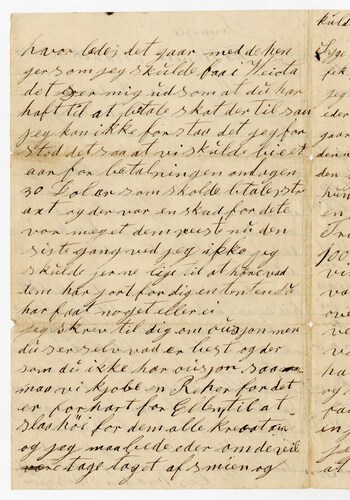 hvor ledes det gaar med de hen
ger som jeg skulde faa i Veiota
det ser mig ud som at du har
haft til at betale skat der til saa
jeg kan ikke forstaa det jeg for
stod det saa at vi skulde bie et
aar for betalningen om dagen
30 Dolar som skolde betales str
axt og der var en skud for dete
vor meget dem veste nu den
siste gang ved jeg ikke jeg
skulde jerne lige til at höre vad
tem har jort for dig enten du
har faat noget eller ei
Jeg skrev til dig om ousjon men
du ser selv vad er best og der
som du ikke har ousjon saa
maa vi kjobe en Rcher for det
er for hart for Ellen til at
slaa höi for dem alle
og jeg maa bede eder om de vil
vere tage laget af smien og
kuld
fik
jeg
eder
gaar
den
den
en
100
vi
over
ver